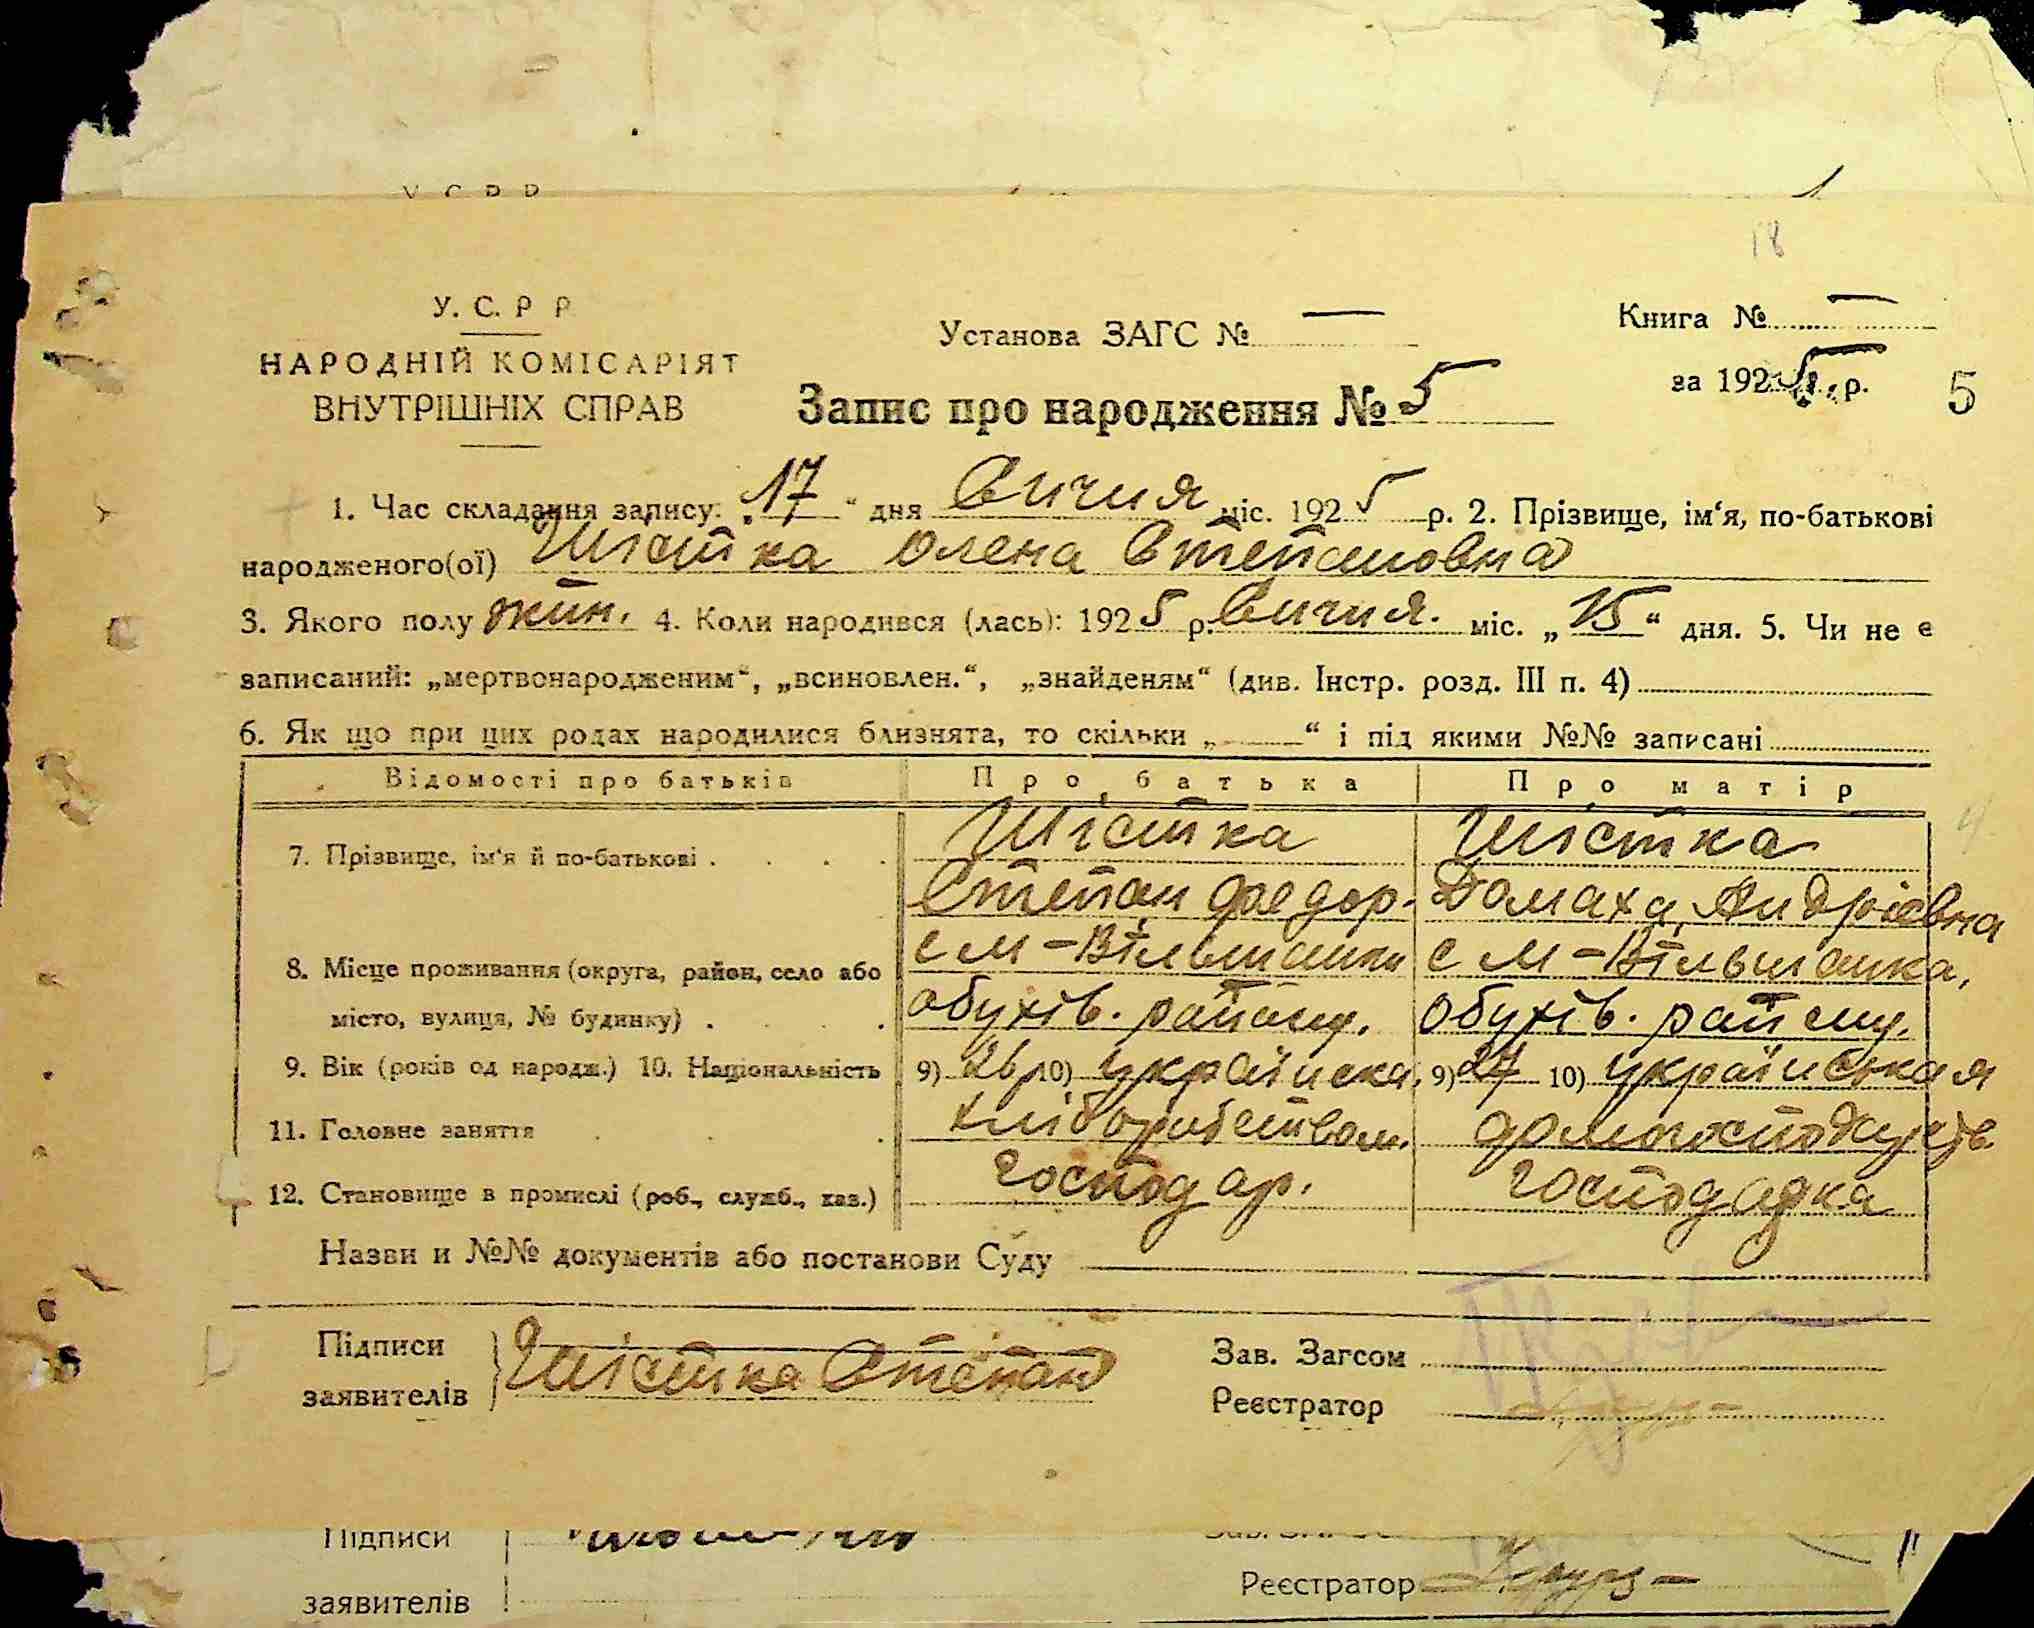 У. С. Р Р
18
У. С. Р Р
НАРОДНІЙ КОМІСАРІЯТ
ВНУТРІШНІХ СПРАВ
Установа ЗАГС № —
Книга № —
за 1925 р.
5
Запис про народження № 5
1. Час складання запису: „17“ дня Січня міс. 1925 р. 2. Прізвище, ім‘я, по-батькові
народженого(ої) Шістка Олена Степановна
3. Якого полу жін. 4. Коли народився (лась): 1925 р. Січня. міс. „15“ дня. 5. Чи не є
записаний: „мертвонародженим“, „всиновлен.“, „знайденям“ (див. Інстр. розд. III п. 4)
6. Як що при цих родах народилися близнята, то скільки „ “ і під якими №№ записані
Відомості про батьків Про батька Про матір
7. Прізвище, ім‘я й по-батькові . . . . Шістка Шістка
Степан Федор. Домаха Андрієвна
8. Місце проживання (округа, район, село або с М–Вільшанки с М–Вільшанка,
місто, вулиця, № будинку) . . . обухів. району. обухів. району.
9. Вік (років од народж.) 10. Національність 9) 26 10) україиска. 9) 27 10) українськая
11. Головне заняття . . . хліборобством.
12. Становище в промислі (роб., служб., хаз.) господар. господарка
Назви и №№ документів або постанови Суду
Підписи
заявителів
Шістка Степан
Зав. Загсом
Реєстратор
Підписи
заявителів
Реєстратор